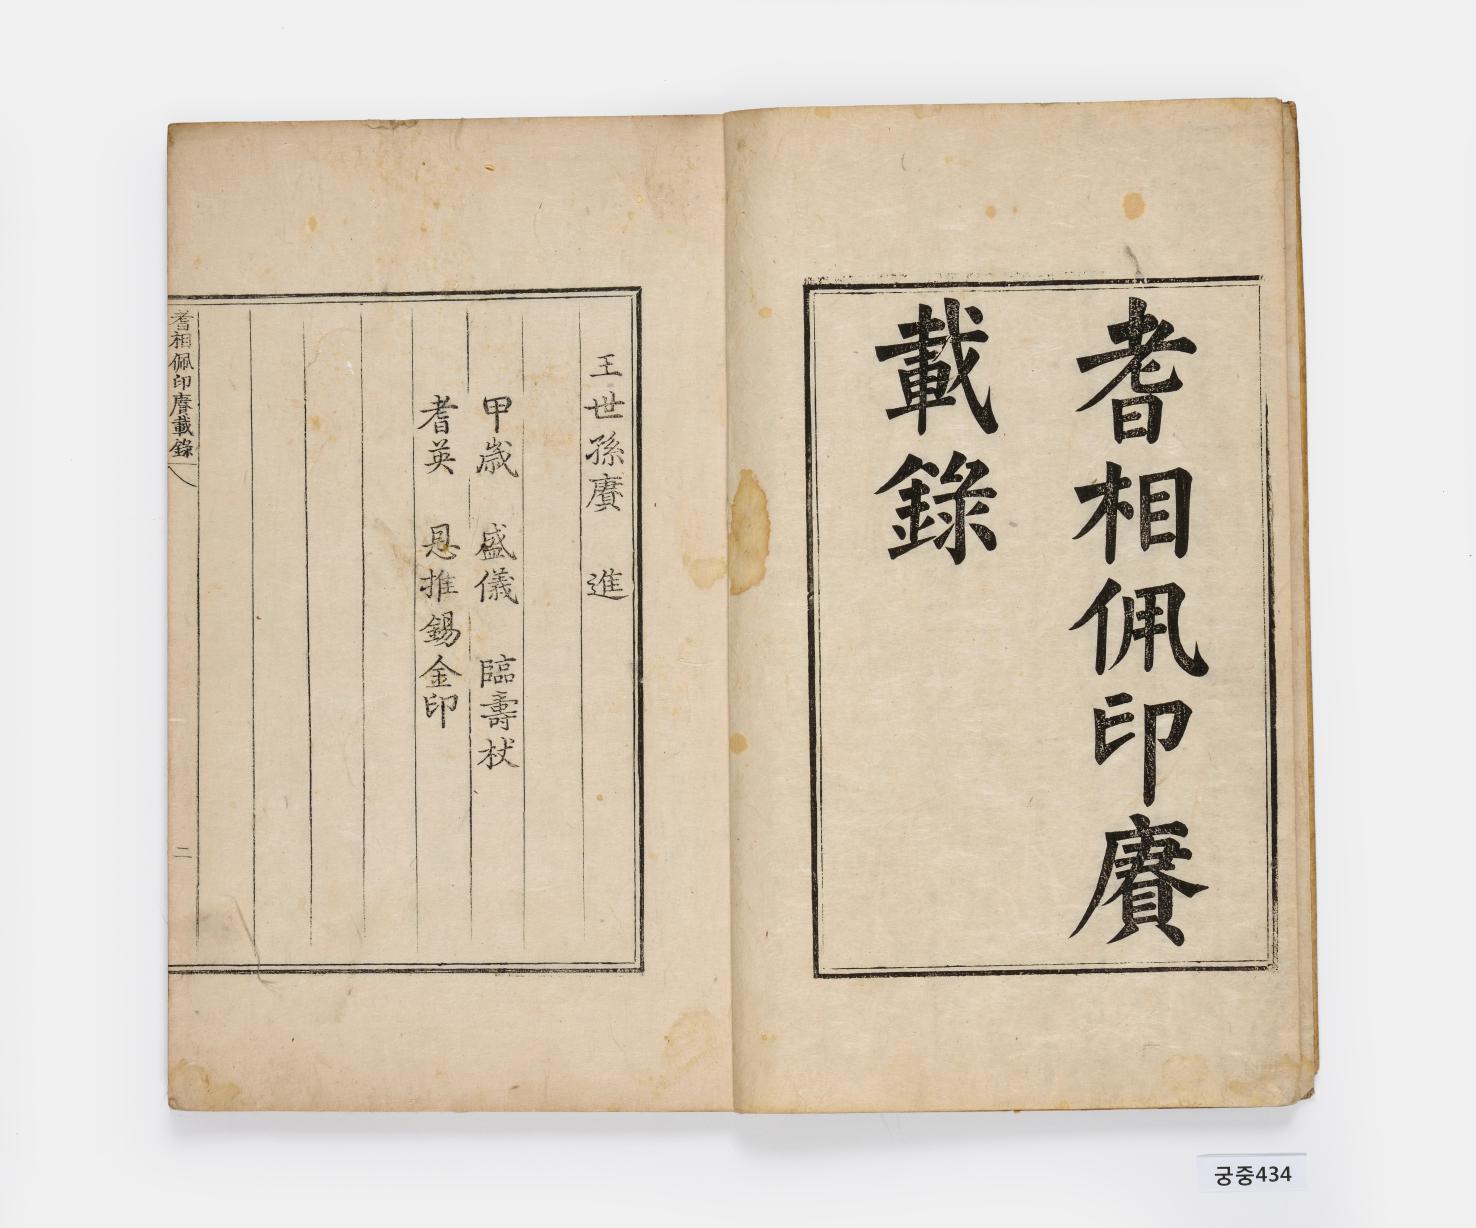 耆相佩印賡
載錄
王世孫賡 進
甲歲 盛儀 臨壽杖
耆英 恩推錫金印
耆相佩印賡載錄
二
궁중434